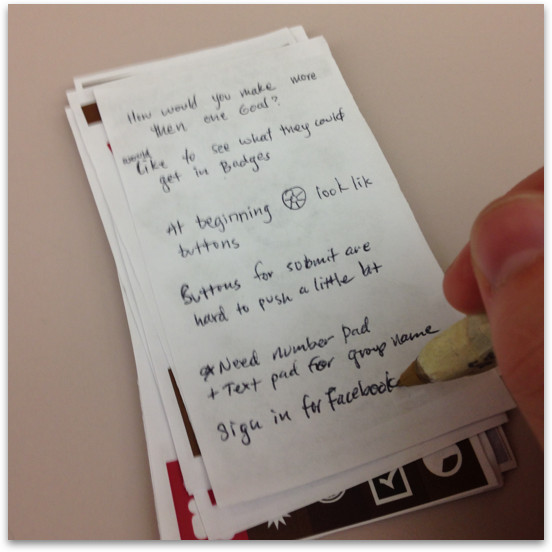 How would you make more
then one Goal?
would
Like to see what they could
get in Badges
At beginning look lik
buttons
Buttons for submit are
hard to push a little bit
* Need number pad
+ Text pad for group name
Sign in for Facebook